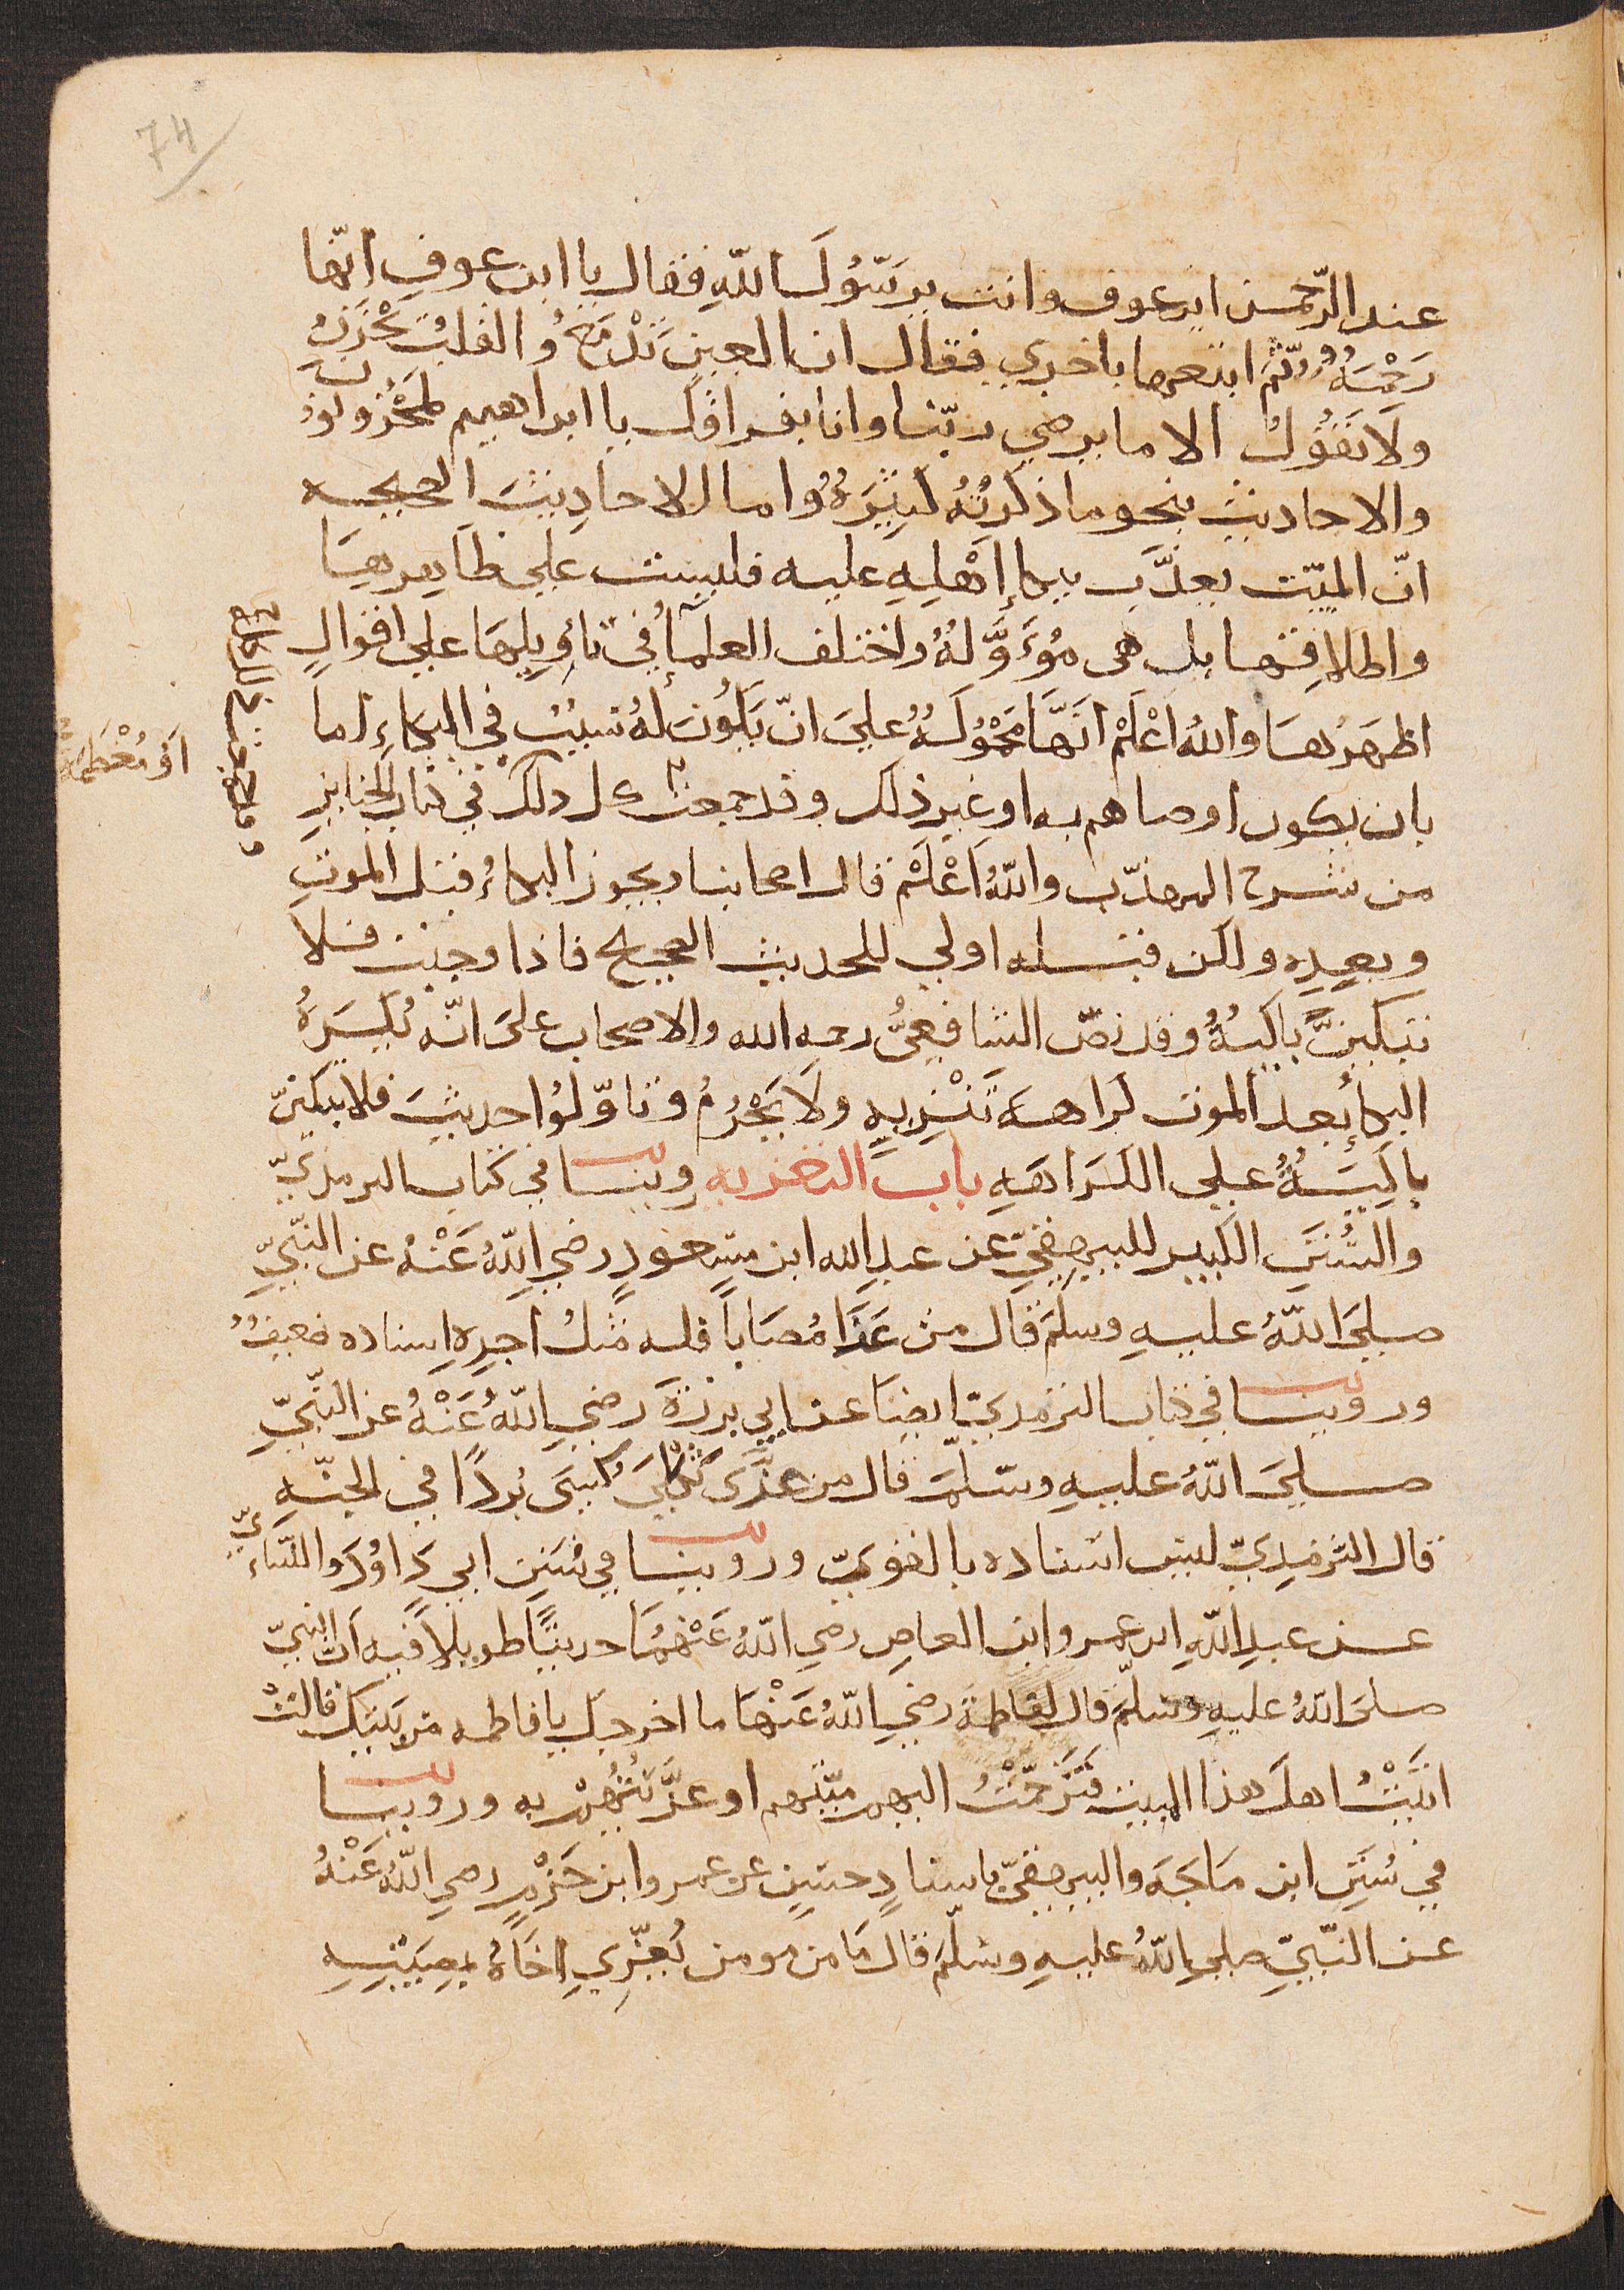 74
عبد الرّحمن ابن عوف وانت يرسّوُلَ اللّهِ فقال يا ابن عوفٍ انّها
رَحْمَهٌ ثُمّ اتبعها باخري فقال ان العين تَدْمَعُ والقلبُ يحْزَنُ
ولَا نَقُوُلُ الا ما يرضي ربّنا وانا بفراقك يا ابراهيم لمَحْزونونَ
والاحاديث بنحو ما ذكرتُهُ كَثِيرَهٌ واما الاحاديثَ الصحيحه
انّ الميّت يعذَّب ببكاءِ اَهْلِهِ عليه فليست علي ظاهرهَا
واطلاقِها بل هي مُوَءَوَّلهٌ واختلف العلماءُ في تاوِيلِهَا علي اقوالٍ
اظهرُهَا واللهُ اعْلَمُ انّهَا مَحْمُوُلَهٌ عليَ انّ يَكُونَ لهُ سببٌ في البكاءِ اما
بان يكون اوصاهم به او غيرِ ذلك وقد جمعتُ كل ذلك في كتاب الجنايزِ
من شرح المهذّب واللّهُ اَعْلَمُ قال اصحابنا ويجوز البكاءُ قبل الموتِ
وبعدِه ولكن قبله اولي للحديث الصحيح فاذا وجبت فلا
تبكينَّ باكيهٌ وقد نصّ الشافعِىُّ رحمه الله والاصحاب علىَ انّه يُكرَهُ
البكاءُ بعد الموت كراهه تَنْزِيهٍ ولَا يَحْرُمُ وتاوّلوُا حديثَ فلا تبكينّ
باكيَهٌ علي الكَرَاهَهِ بابَ التعزيه روينا في كتاب الترمذيّ
والسُّننَِ الكبير للبيهقيّ عن عبدِ الله ابن مسعودٍ رضي اللّهُ عَنْهُ عن النّبيِّ
صليَ اللّهُ عليهِ وسلمَ قال من عَزَّا مُصَاباً فله مثلُ اجرِهِ اِسناده ضعيفٌ
وروينا في كتاب الترمذيّ ايضاَ عن ابي برزةَ رضي اللّهُ عَنْهُ عن النّبيِّ
صليَ اللّهُ عليهِ وسّلمَ قال من عَزَّى ثكْلىَ كُسِىَ بُردًا في الجنّهِ
قال الترمذيّ ليس اسناده بالقويّ وروينا في سُنَنِ ابي دَاوُدَ والنّساءيّ
عن عبدِ اللّهِ ابن عمرو ابن العاصِ رضي اللّهُ عَنْهُمَا حديثًا طويلاً فيه انّ النبيّ
صليَ اللّهُ عليهِ وسلّم قال لفاطمةَ رضي اللّهُ عَنْهَا ما اخرجكِ يا فاطمه من بيتِكِ قالتْ
اتَيْتُ اهلَ هذا البيت فتَرَحّمْتُ اليهم ميّتهم او عزّيتُهُمْ به وروينا
في سُنَنِ ابن مَاجَهَ والبيهقيّ باسنادٍ حسَنٍ عن عمرو ابن حَزْمٍ رضي اللّهُ عَنْهُ
عن النّبيِّ صلي اللّهُ عليهِ وسلّمَ قال مَا من مومن يُعَزِّي اخَاهُ بمصيبتِهِ